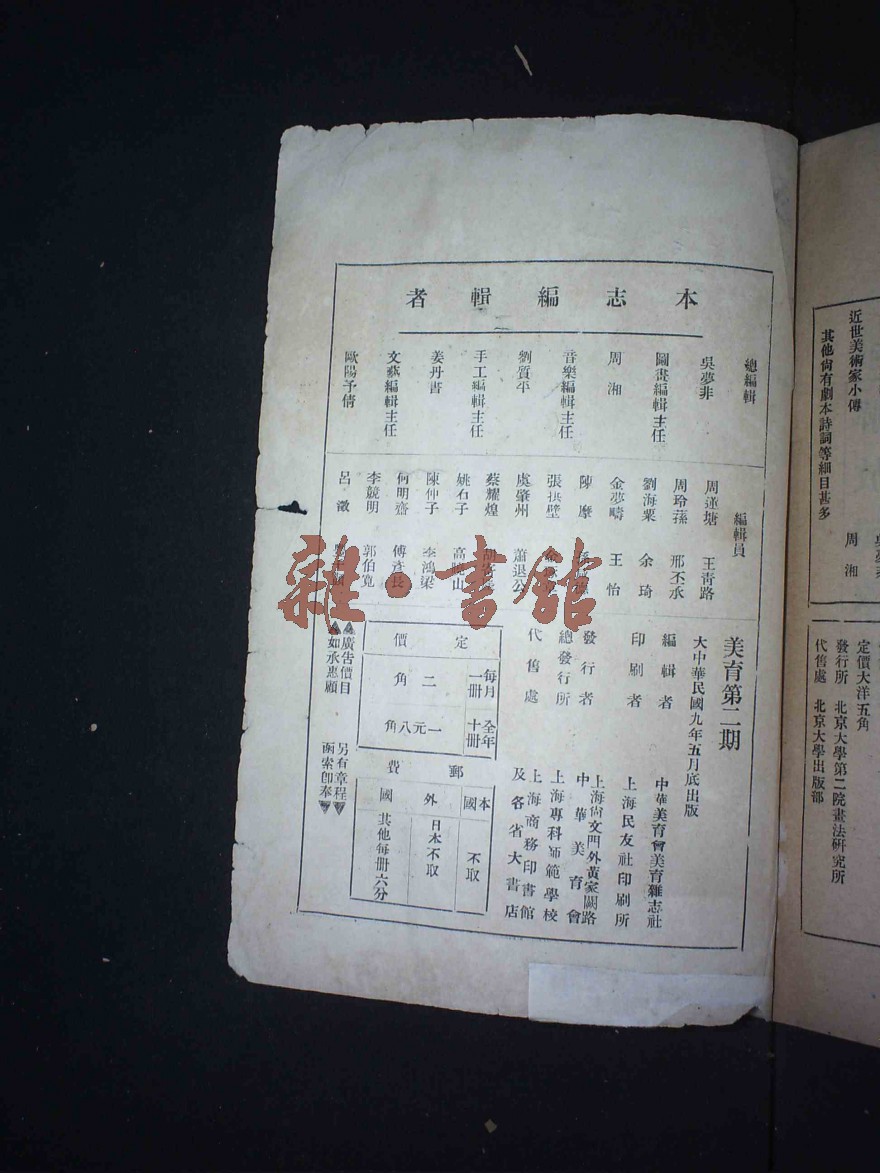 本志編輯者
總編輯
吳夢非
圖畫編輯主任
周湘
音樂編輯主任
劉質平
手工編輯主任
姜丹書
文藝編輯主任
歐陽予倩
編輯員
周蓮塘 王青路
周玲蓀 邢丕承
劉海粟 余琦
金夢疇 王怡
陳摩
張拱壁
虞肇州 蕭退公
蔡耀煌
姚石子 高曉山
陳仲子 李鴻梁
何明齋 傅彥長
李競明 郭伯寬
呂澂
美育第二期
大中華民國九年五月底出版
編輯者 中華美育會美育雜志社
印刷者 上海民友社印刷所
發行者 上海尚文門外黃家闕路 中華美育會
總發行所 上海專科師範學校
代售處 上海商務印書館 及各省大書店
定價
每月一冊 二角
全年十冊 一元八角
郵費
本國 不取
外國 日本不取
其他每冊六分
廣告價目 另有章程
如承惠顧 函索卽奉
雜·書館
近世美術家小傳 周湘
其他尙有劇本詩詞等細目甚多
定價大洋五角
發行所 北京大學第二院畫法研究所
代售處 北京大學出版部